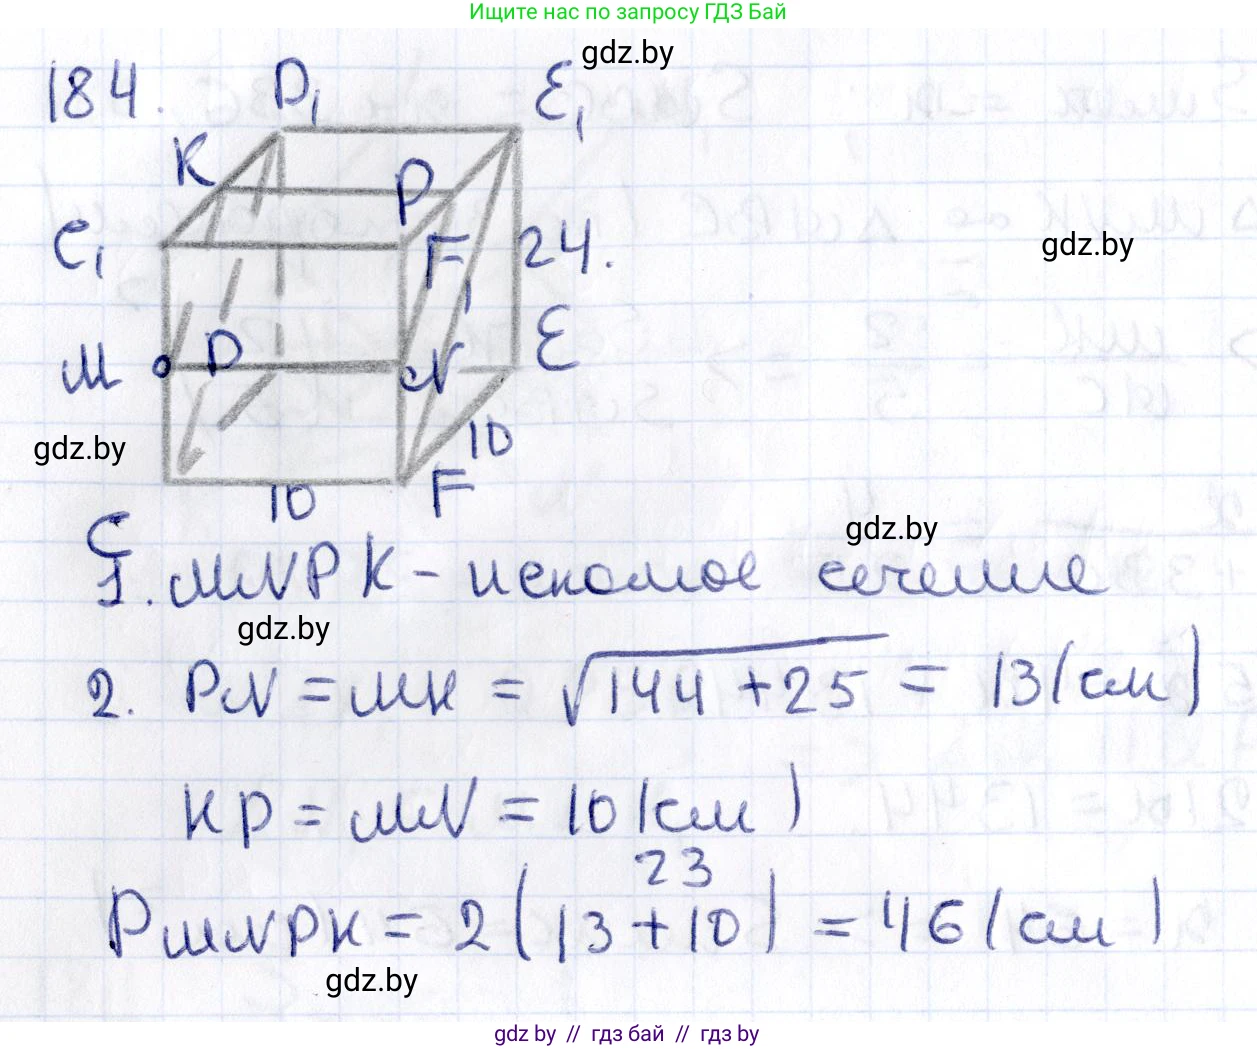 Ищите нас по запросу ГДЗ Бай
gdz.by
184. D₁ E₁
K P
C₁ F₁ 24.
gdz.by
M D N E
gdz.by
10
10 F
C
gdz.by
1. MNPK - искомое сечение
gdz.by
2. PN = MK = √144 + 25 = 13 (см)
KP = MN = 10 (см)
23
PMNPK = 2 (13 + 10) = 46 (см)
gdz.by
gdz.by // гдз бай // гдз by